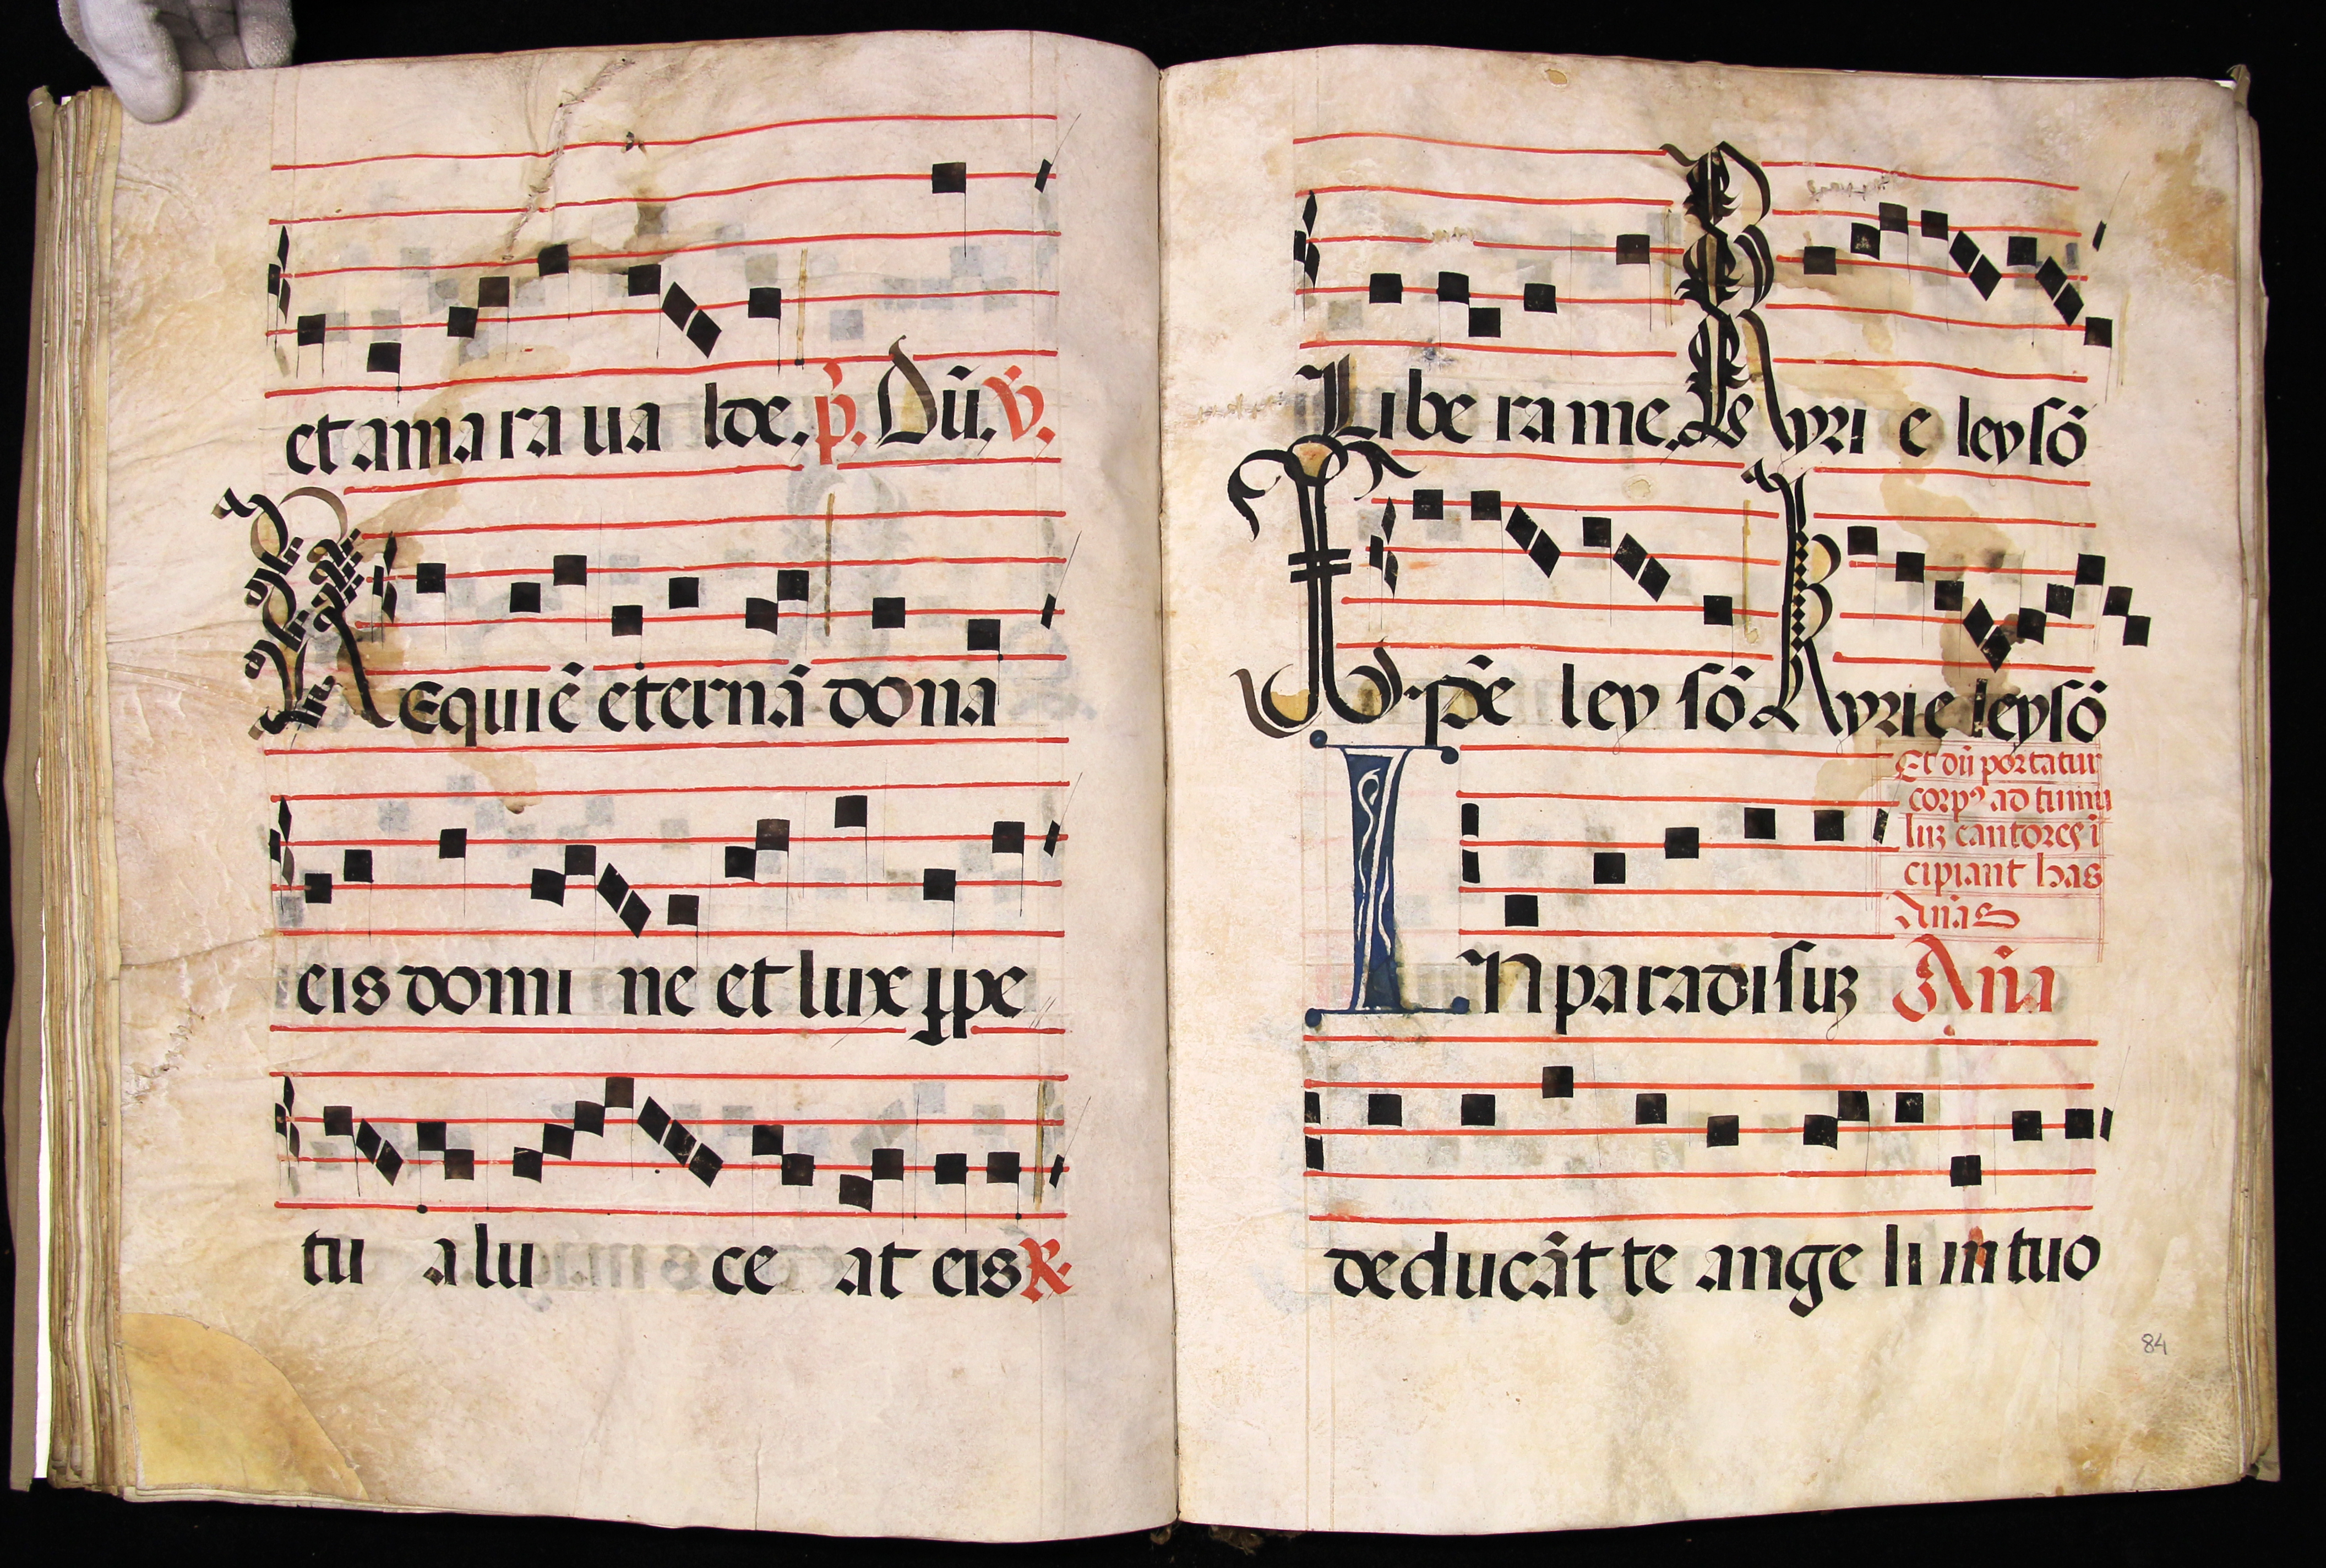 et amara ua lde. p̃. Dũ. ṽ.
Requiẽ eternã dona
eis domi ne et lux ꝑpe
tu a lu ce at eis ℟
Libe ra me. Kyri e leysõ
Xp̃e ley sõ Kyrie leysõ
Et dũ portatur
corpꝰ ad tumu
luꝫ cantores ĩ
cipiant has
Añas
In paradisuꝫ Aña
deducãt te ange li in tuo
84